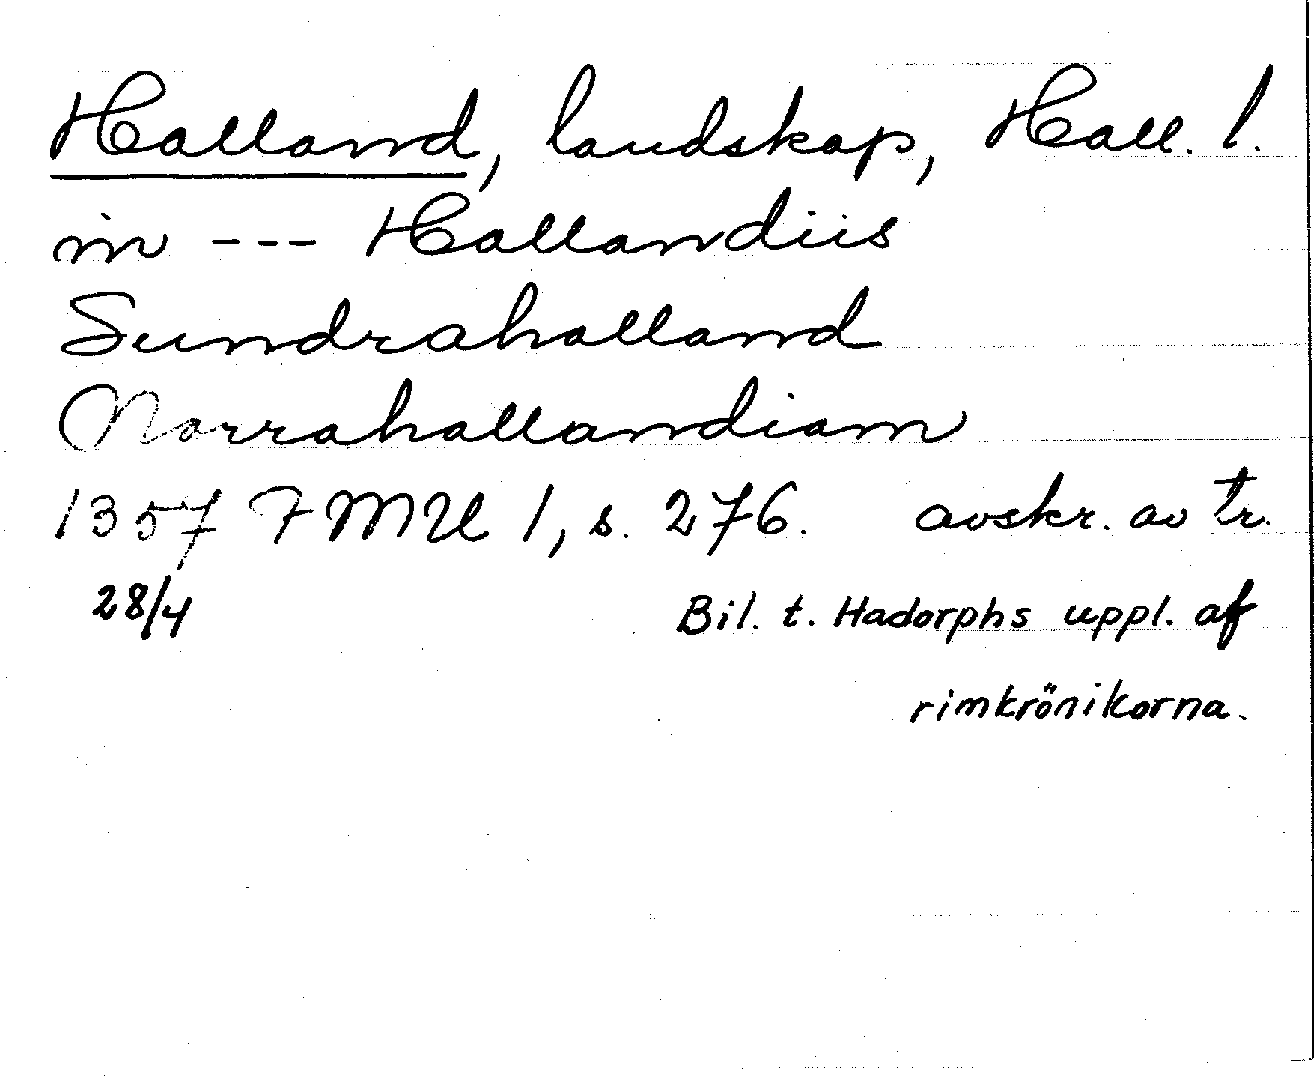 Halland, landskap, Hall. l.
in --- Hallandiis
Sundrahalland
Norrahallandiam
1357 FMU 1, s. 276. avskr. av tr.
28/4 Bil. t. Hadorphs uppl. af
rimkrönikorna.